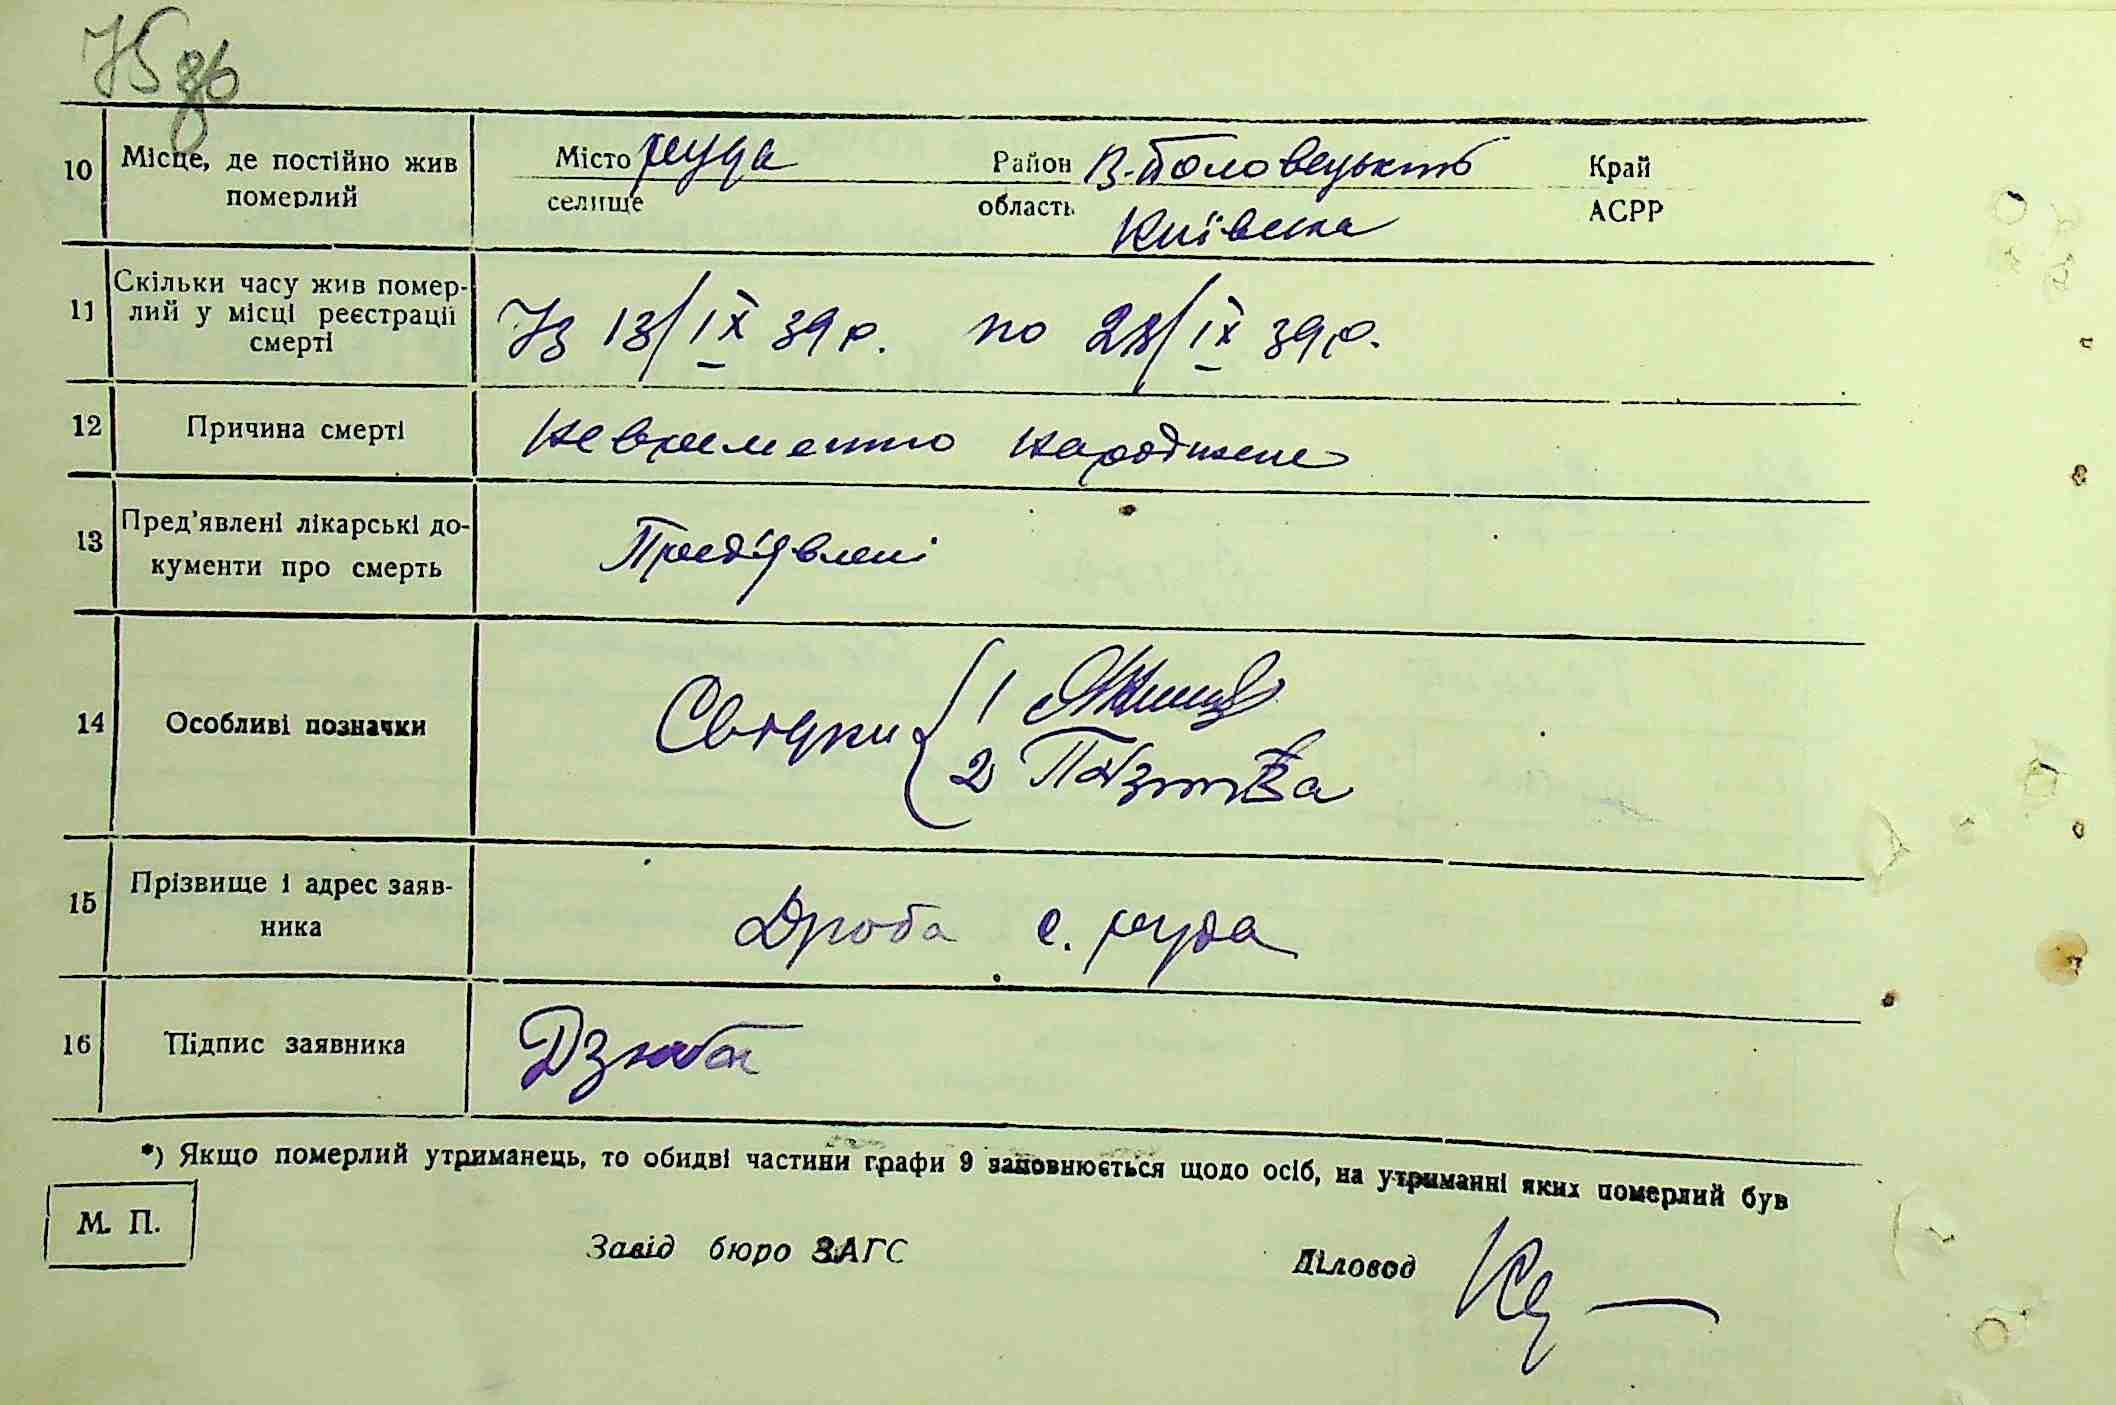 75 зв
10 Місце, де постійно жив померлий Місто руда Район В-Половецький Край
селище область Київська АСРР
11 Скільки часу жив помер-
лий у місці реєстрації
смерті
Із 13/IX 39 р. по 23/IX 39 р.
12 Причина смерті невременно народжене
13 Пред'явлені лікарські до-
кументи про смерть
Пред'явлені
14 Особливі позначки Свідки 1
2
15 Прізвище і адрес заяв-
ника
Дзюба с. руда
16 Підпис заявника Дзюба
*) Якщо померлий утриманець, то обидві частини графи 9 заповнюється щодо осіб, на утриманні яких померлий був
М. П.
Завід бюро ЗАГС Діловод